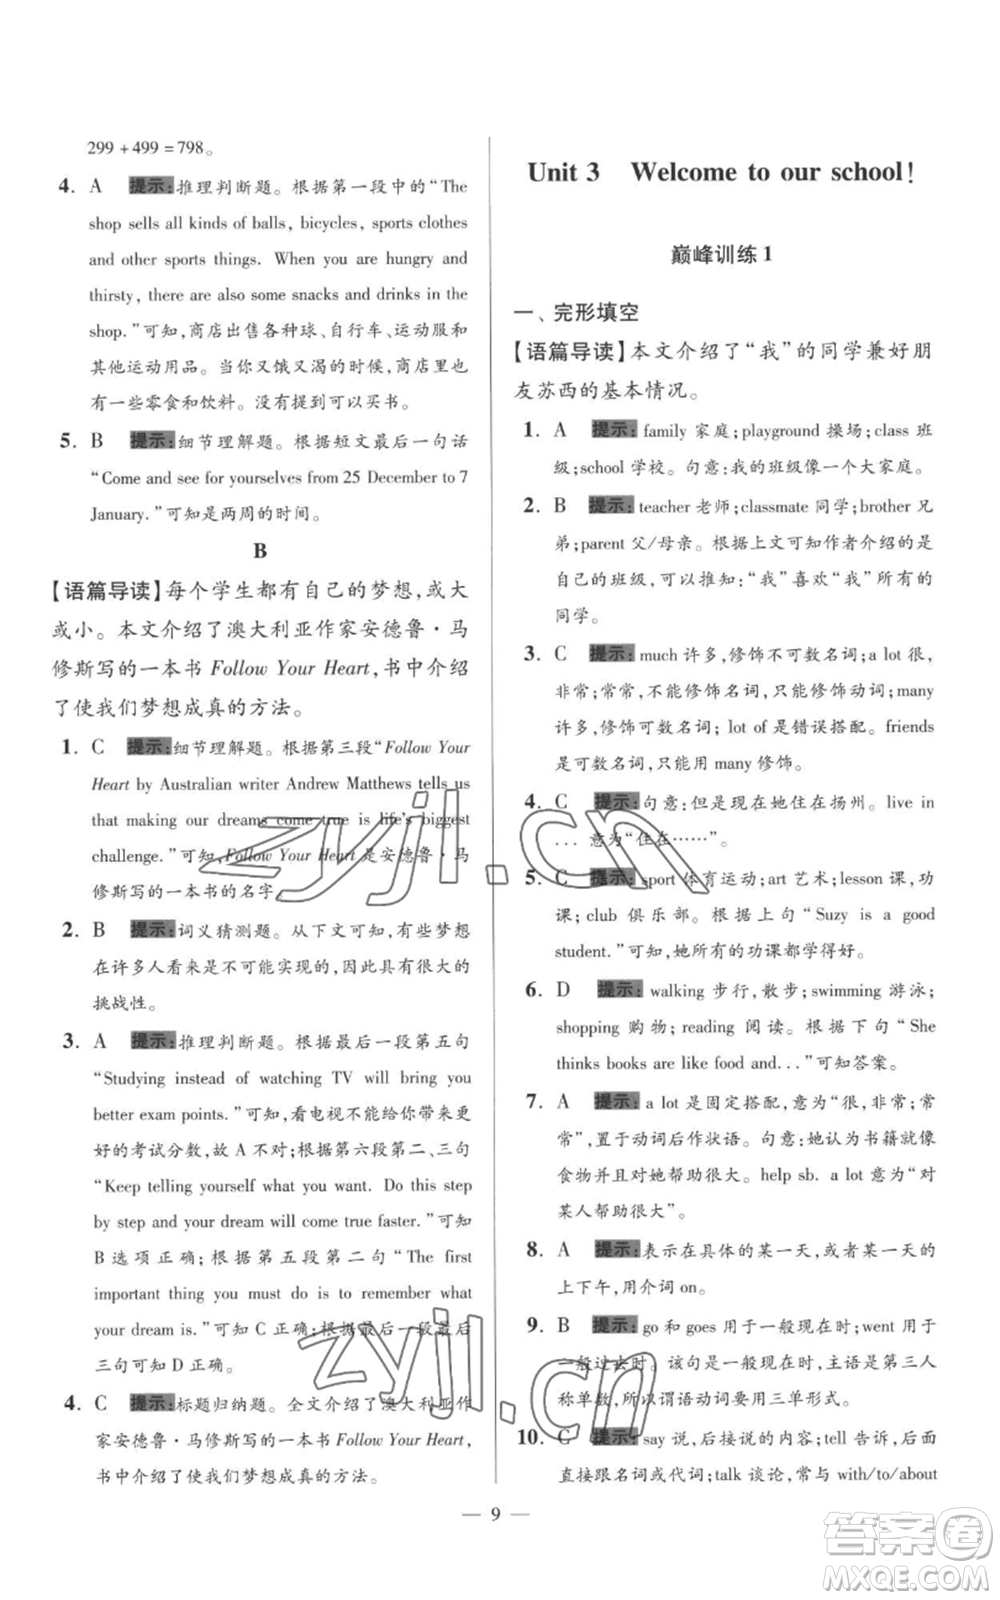 299 + 499 = 798。
4. A 提示:推理判断题。根据第一段中的“The
shop sells all kinds of balls, bicycles, sports clothes
and other sports things. When you are hungry and
thirsty, there are also some snacks and drinks in the
shop.”可知,商店出售各种球、自行车、运动服和
其他运动用品。当你又饿又渴的时候,那里也有
一些零食和饮料。没有提到可以买书。
5. B 提示:细节理解题。根据短文最后一句话
“Come and see for yourselves from 25 December to 7
January.”可知是两周的时间。
B
【语篇导读】每个学生都有自己的梦想,或大
或小。本文介绍了澳大利亚作家安德鲁·马
修斯写的一本书 Follow Your Heart,书中介绍
了使我们梦想成真的方法。
1. C 提示:细节理解题。根据第三段“Follow Your
Heart by Australian writer Andrew Matthews tells us
that making our dreams come true is life's biggest
challenge.”可知,Follow Your Heart 是安德鲁·马
修斯写的一本书的名字
2. B 提示:词义猜测题。从下文可知,有些梦想
在许多人看来是不可能实现的,因此具有很大的
挑战性。
3. A 提示:推理判断题。根据最后一段第五句
“Studying instead of watching TV will bring you
better exam points.”可知,看电视不能给你带来更
好的考试分数,故 A 不对;根据第六段第二、三句
“Keep telling yourself what you want. Do this step
by step and your dream will come true faster.”可知
B 选项正确;根据第五段第二句“The first
important thing you must do is to remember what
your dream is.”可知 C 正确;根据最后一段最后
三句可知 D 正确。
4. C 提示:标题归纳题。全文介绍了澳大利亚作
家安德鲁·马修斯写的一本书 Follow Your Heart,
书中介绍了使我们梦想成真的方法。
Unit 3 Welcome to our school!
巅峰训练 1
一、完形填空
【语篇导读】本文介绍了“我”的同学兼好朋
友苏西的基本情况。
1. A 提示:family 家庭;playground 操场;class 班
级;school 学校。句意:我的班级像一个大家庭。
2. B 提示:teacher 老师;classmate 同学;brother 兄
弟;parent 父/母亲。根据上文可知作者介绍的是
自己的班级,可以推知:“我”喜欢“我”所有的
同学。
3. C 提示:much 许多,修饰不可数名词;a lot 很,
非常;常常,不能修饰名词,只能修饰动词;many
许多,修饰可数名词;lot of 是错误搭配。friends
是可数名词,只能用 many 修饰。
4. C 提示:句意:但是现在她住在扬州。live in
... 意为“住在……”。
5. C 提示:sport 体育运动;art 艺术;lesson 课,功
课;club 俱乐部。根据上句“Suzy is a good
student.”可知,她所有的功课都学得好。
6. D 提示:walking 步行,散步;swimming 游泳;
shopping 购物;reading 阅读。根据下句“She
thinks books are like food and...”可知答案。
7. A 提示:a lot 是固定搭配,意为“很,非常;常
常”,置于动词后作状语。句意:她认为书籍就像
食物并且对她帮助很大。help sb. a lot 意为“对
某人帮助很大”。
8. A 提示:表示在具体的某一天,或某一天的
上下午,用介词 on。
9. B 提示:go 和 goes 用于一般现在时;went 用于
一般过去时。该句是一般现在时,主语是第三人
称单数,所以谓语动词要用三单形式。
10. C 提示:say 说,后接说的内容;tell 告诉,后面
直接跟名词或代词;talk 谈论,常与 with/to/about
— 9 —
zyjl.cn
zyjl.cn
答案卷
MXQE.COM